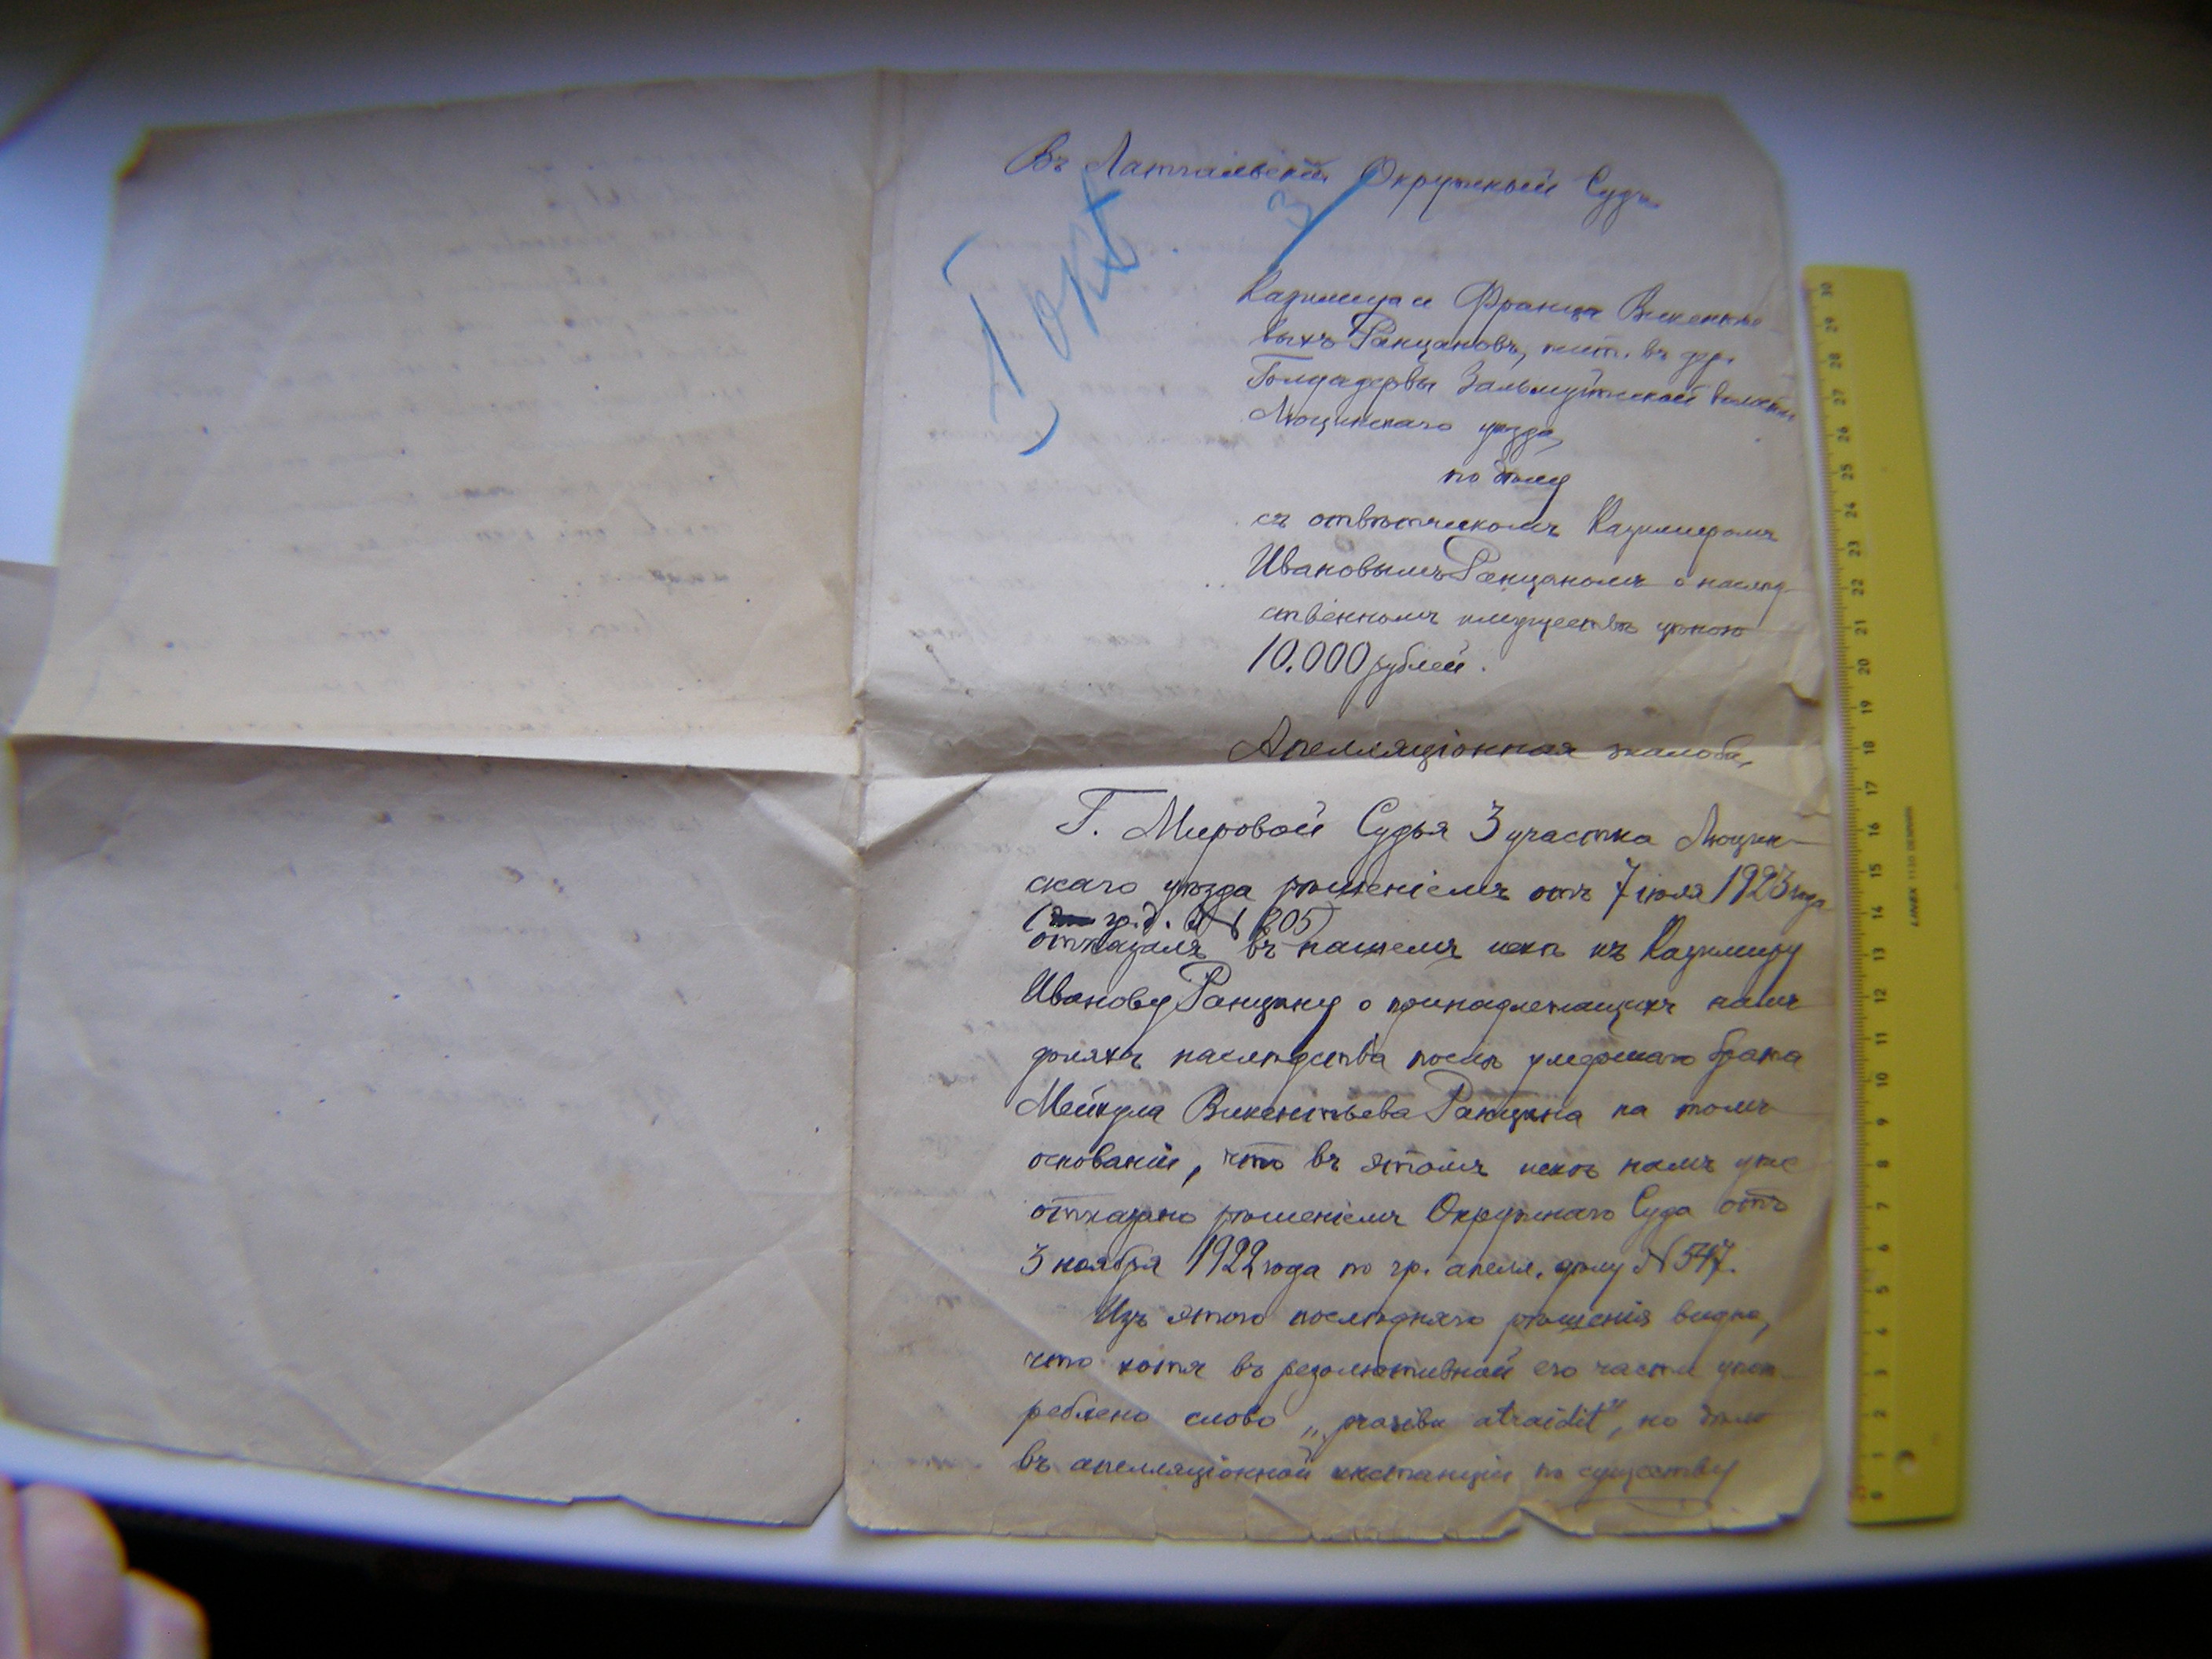 Въ Латгальскiй Окружный Судъ
I окт. 3
Казимира и Франца Викентье-
выхъ Ранцановъ, жит. въ дер.
волости
Люцинскаго уѣзда,
по дѣлу
съ отвѣтчикомъ Казимиромъ
Ивановымъ Ранцаномъ о наслѣд-
ственномъ имуществѣ цѣною
10.000 рублей.
Апелляцiонная жалоба,
Г. Мировой Судья 3 участка Люцин-
скаго уѣзда рѣшенiемъ отъ 7 iюля 1923 года
( гр. д. № 205)
отказалъ въ нашемъ искѣ къ Казимиру
Иванову Ранцану о принадлежащихъ намъ
доляхъ наслѣдства послѣ умершаго брата
Мейкула Викентьева Ранцана на томъ
основанiи, что въ этомъ искѣ намъ уже
отказано рѣшенiемъ Окружнаго Суда отъ
3 ноября 1922 года по гр. апелл. дѣлу N 547.
Изъ этого послѣдняго рѣшенiя видно,
что хотя въ резолютивной его части упот-
реблено слово „prasību atraidīt", но дѣло
въ апелляцiонной инстанцiи по существу
LINEX 1130 DENMARK
30 29 28 27 26 25 24 23 22 21 20 19 18 17 16 15 14 13 12 11 10 9 8 7 6 5 4 3 2 1 0